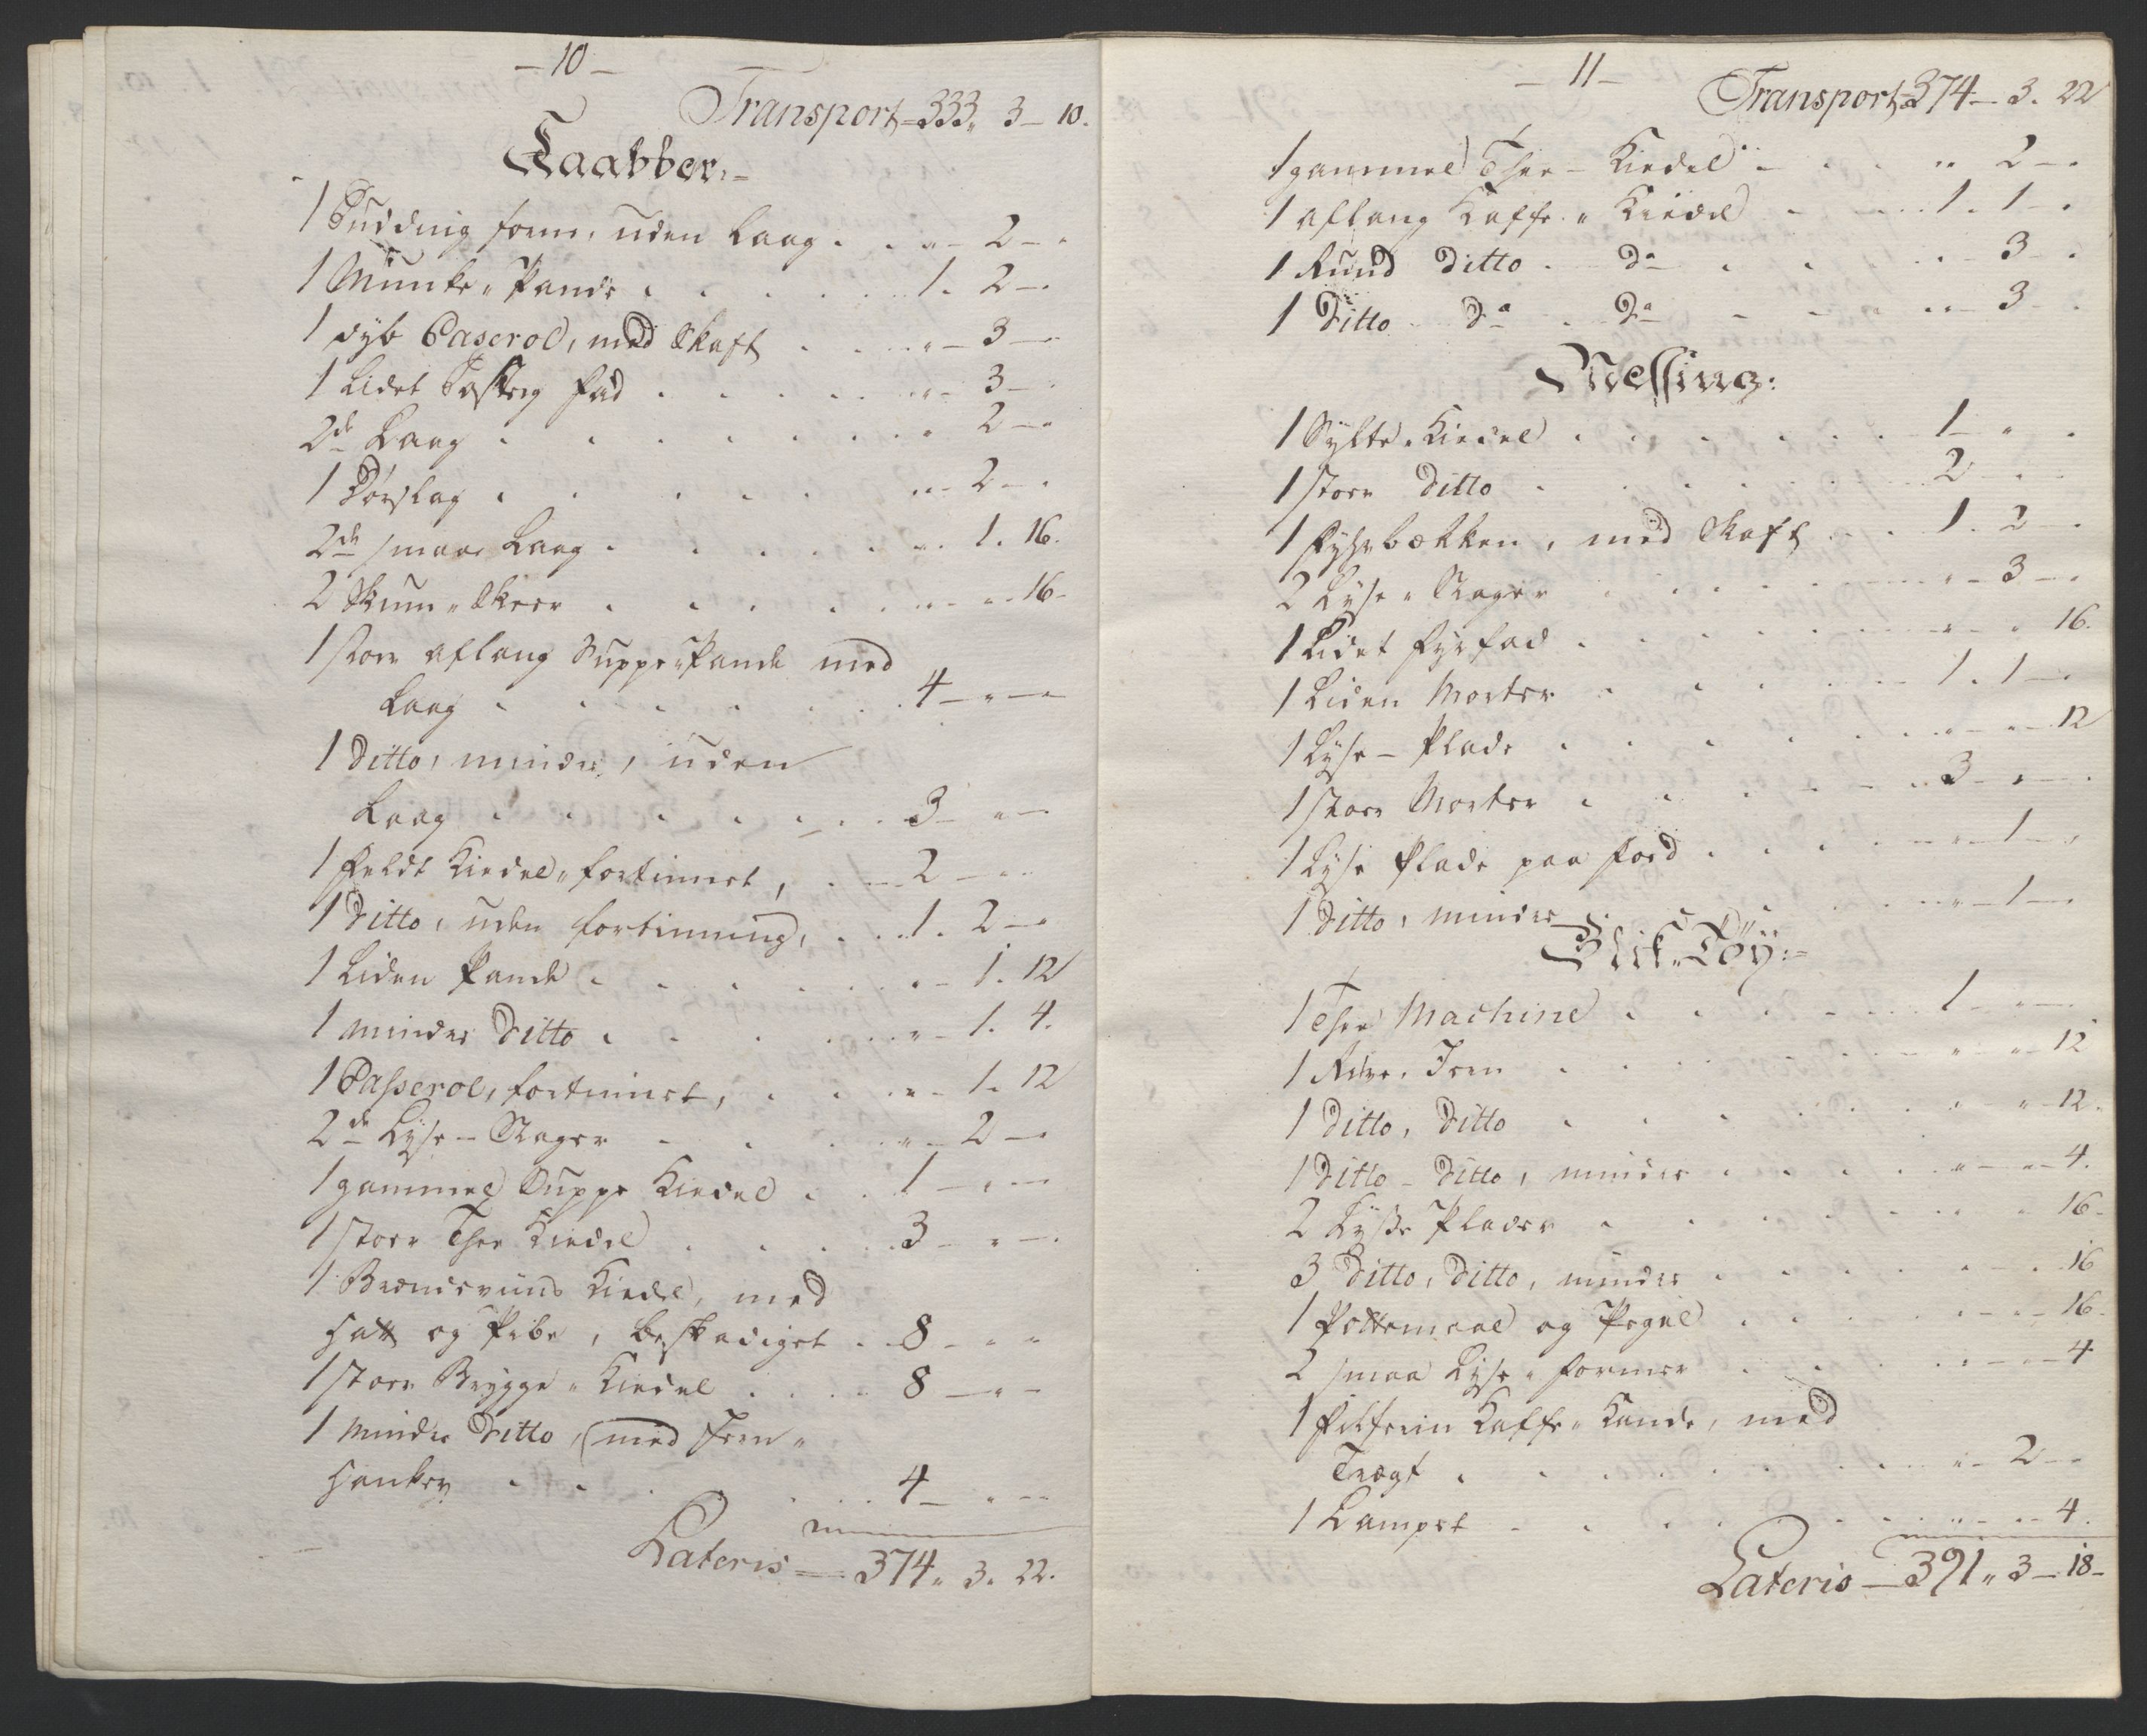 - 10 -
Transport = 333 " 3 - 10.
Kaabber:-
1 Pudding form, uden Laag . . " - 2 - "
1 Munke " Pande . . . . 1. 2 - .
1 dyb Caserol, med Skaft . . . " - 3 - "
1 Lidet fad . . . . " - 3 - .
2de Laag . . . . . " 2 - "
1 Dørslag . . . . " - 2 - .
2de smaa Laag . . . . " . 1. 16.
2 Skum " Skeer . . . . " - " 16 -
1 stor aflang Suppe " Pande med
Laag . . . . . . 4 - " - "
1 Ditto, mindre, uden
Laag . . . . . . 3 - " -
1 Feldt Kiedel " fortinnet, . . 2 - " -
1 Ditto, uden fortinning, . . . 1. 2 - "
1 Liden Pande . . . . " - 1. 12
1 mindre Ditto . . . . " - 1. 4.
1 Casserol, fortinnet, . . . " - 1. 12
2de Lyse - Stager . . . " - 2 - "
1 gammel Suppe Kiedel . . 1 - " -
1 stor Thee Kiedel . . . . 3 - " - .
1 Brændeviins Kiedel, med
Hatt og Pibe, beskadiget . . 8 - " "
1 stor Brygge " Kiedel . . . . 8 - " -
1 mindre Ditto, (med Jern "
Hanker . . . . . 4 - " -
Lateris = 374 " 3. 22.
- 11 -
Transport = 374 - 3. 22
1 gammel Thee - Kiedel . . . " 2 - "
1 aflang Kaffe " Kiedel . . . 1. 1 - "
1 Rund Ditto . do . . . " - 3 - "
1 Ditto . do . do . . . " - 3 - .
Messing:
1 Sylte " Kiedel . . . . . 1 - " .
1 stor Ditto . . . . . . 2 - " -
1 Fyhrbækken, med Skaft . . . 1. 2 .
2 Lyse " Stager . . . . " - 3 - "
1 Lidet Fyrfad . . . . . " - " 16.
1 Liden Morter . . . . . 1. 1 - "
1 Lyse - Plade . . . . . " - " 12
1 stor Morter . . . . . 3 - " - .
1 Lyse Plade paa Foed . . . . " - 1 - "
1 Ditto, mindre . . . " - 1 - "
Blik " Töy:-
1 Thee Machine . . . . . 1 - " -
1 Rive " Jern . . . . . " - " 12
1 Ditto, Ditto . . . . . " - " 12.
1 Ditto - Ditto, mindre . . . . " - " 4.
2 Lysse Plader . . . . . " " 16 -
3 Ditto, Ditto, mindre . . . . " - . 16
1 Pottemaal og Pegel . . . . " - " 16 -
2 smaa Lyse " former . . . . " - " 4
1 Kaffe " Kande, med
Tragt . . . . . . " - 2 - "
1 Lampet . . . . . . " - " 4.
Lateris - 391 " 3 - 18 -